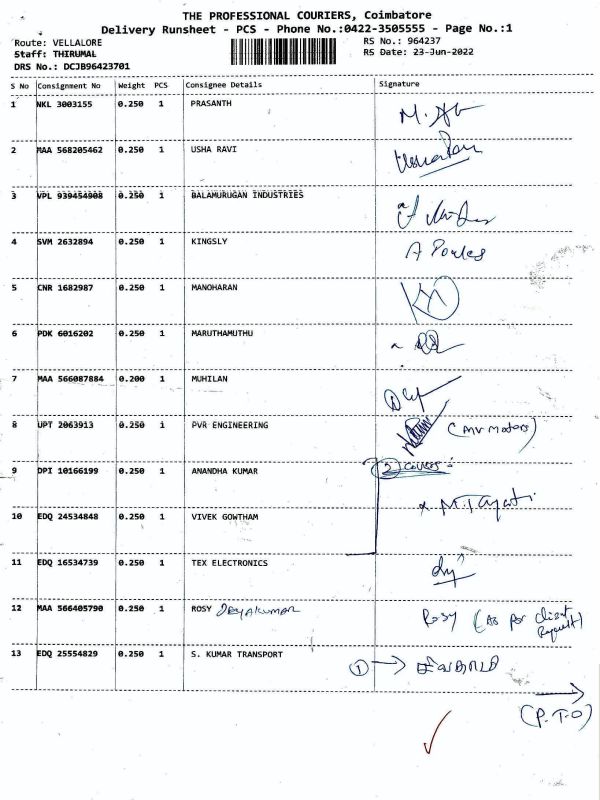 THE PROFESSIONAL COURIERS, Coimbatore
Delivery Runsheet - PCS - Phone No.:0422-3505555 - Page No.:1
Route: VELLALORE RS No.: 964237
Staff: THIRUMAL RS Date: 23-Jun-2022
DRS No.: DCJB96423701
S No Consignment No Weight PCS Consignee Details Signature
1 NKL 3003155 0.250 1 PRASANTH
2 MAA 568205462 0.250 1 USHA RAVI
3 VPL 939454908 0.250 1 BALAMURUGAN INDUSTRIES
4 SVM 2632894 0.250 1 KINGSLY
5 CNR 1682987 0.250 1 MANOHARAN
6 PDK 6016202 0.250 1 MARUTHAMUTHU
7 MAA 566087884 0.200 1 MUHILAN
8 UPT 2063913 0.250 1 PVR ENGINEERING
9 DPI 10166199 0.250 1 ANANDHA KUMAR
10 EDQ 24534848 0.250 1 VIVEK GOWTHAM
11 EDQ 16534739 0.250 1 TEX ELECTRONICS
12 MAA 566405790 0.250 1 ROSY Rosy (As per client Request)
13 EDQ 25554829 0.250 1 S. KUMAR TRANSPORT 1
(P.T.O)